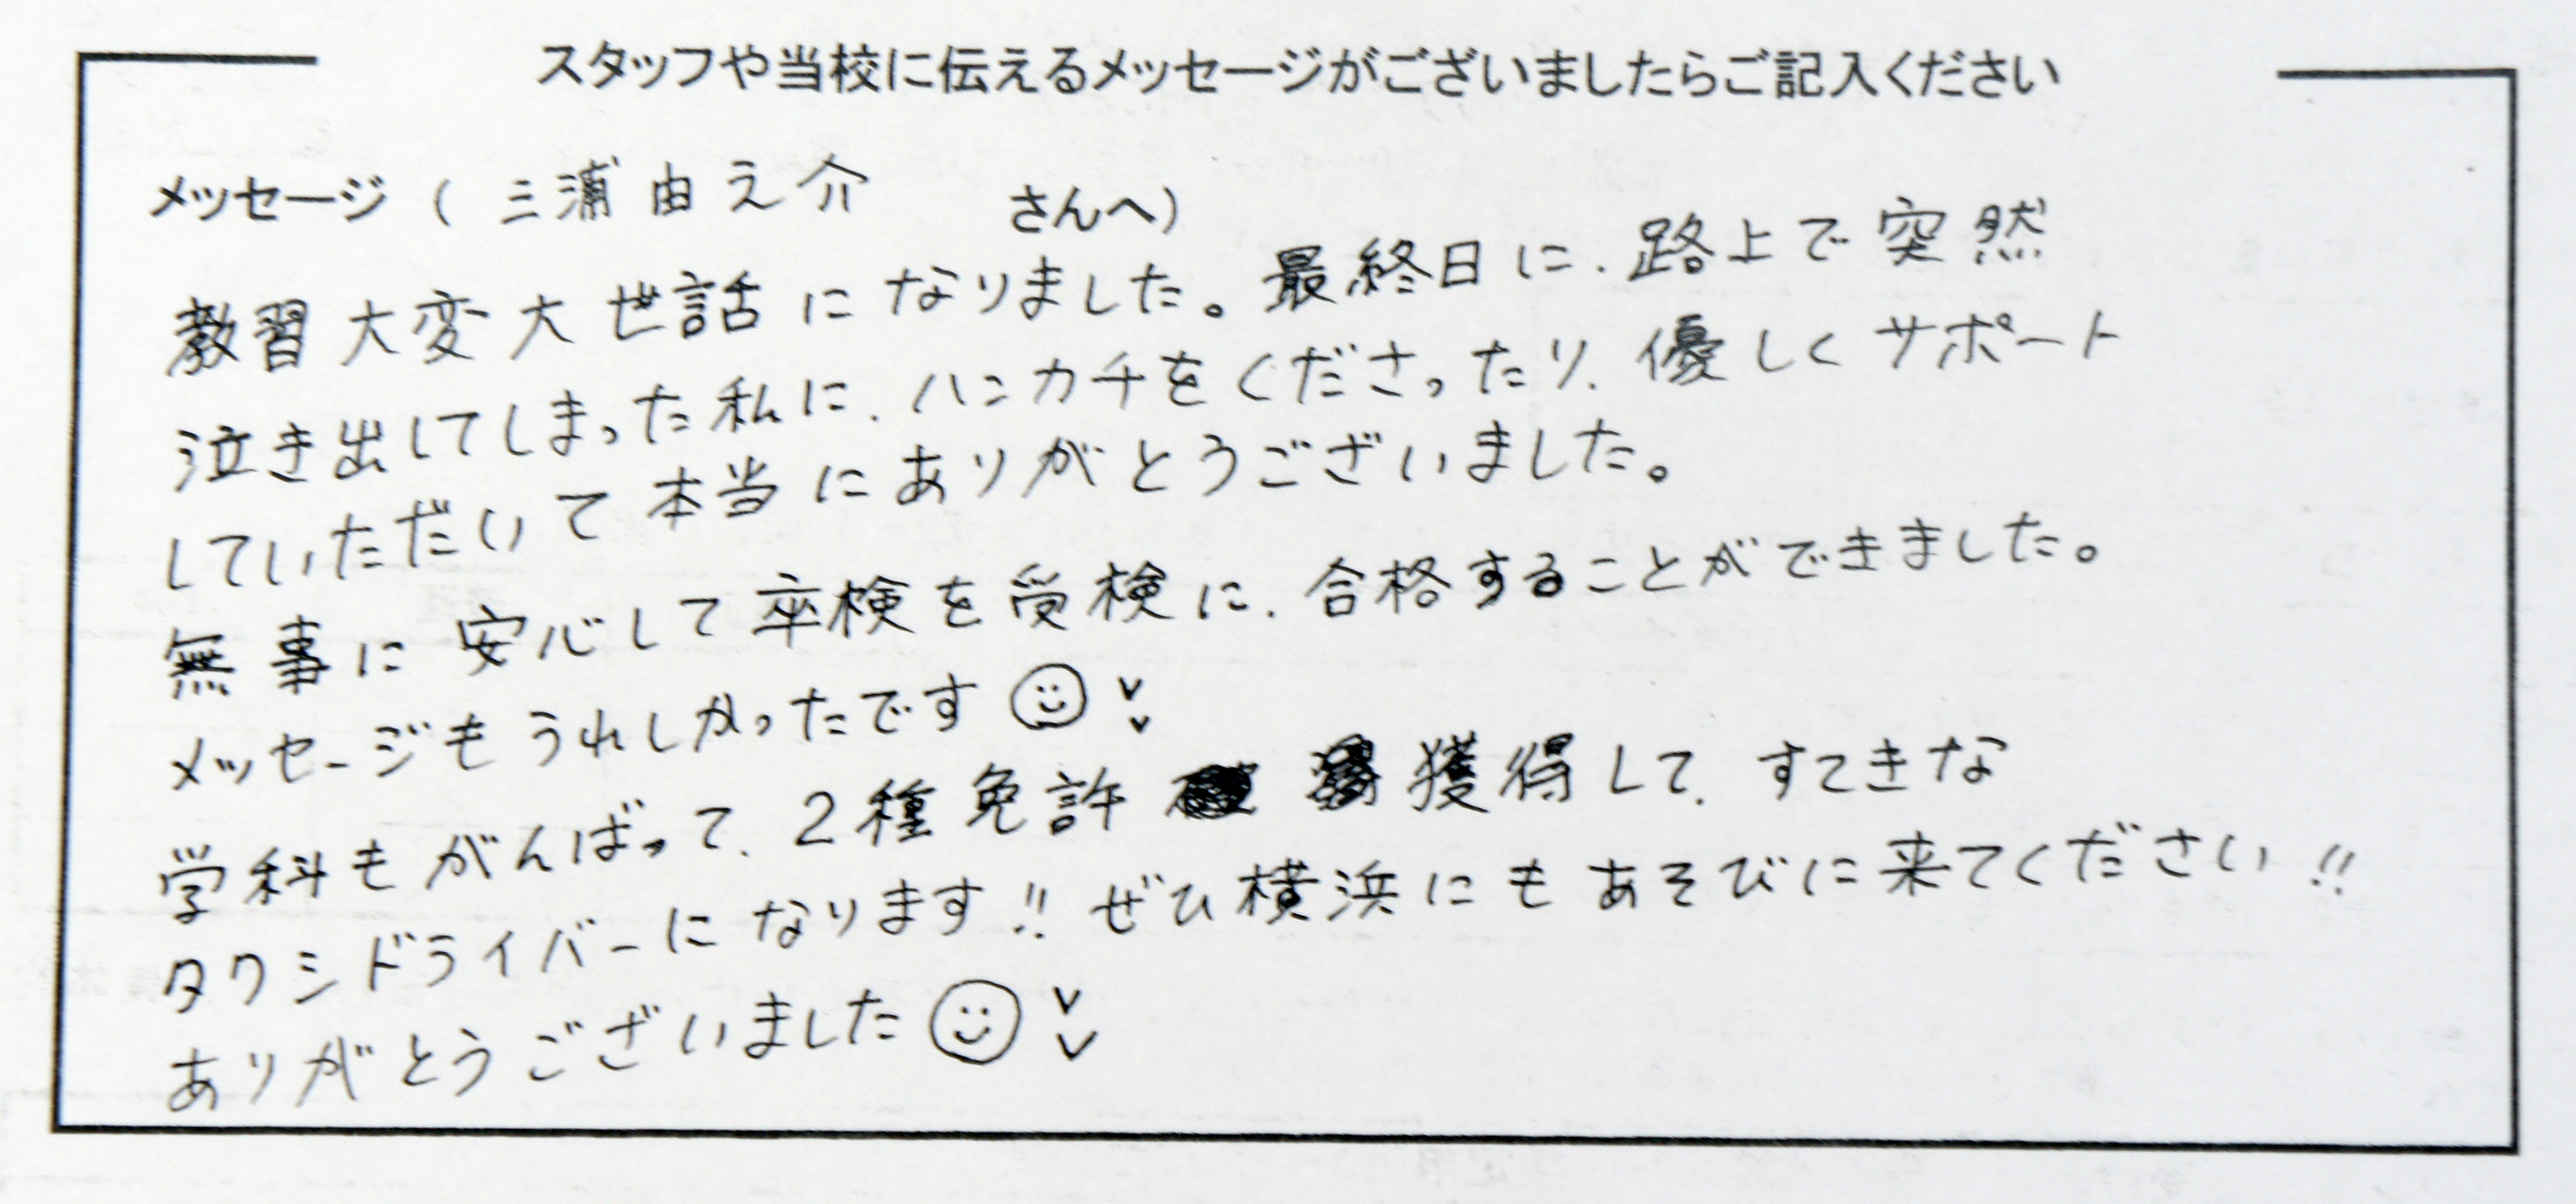 スタッフや当校に伝えるメッセージがございましたらご記入ください
メッセージ（ 三浦由之介 さんへ）
教習大変大世話になりました。最終日に、路上で突然
泣き出してしまった私に、ハンカチをくださったり、優しくサポート
していただいて本当にありがとうございました。
無事に安心して卒検を受検に、合格することができました。
メッセージもうれしかったです
学科もがんばって、2種免許 獲得して、すてきな
タクシドライバーになります!! ぜひ横浜にもあそびに来てください!!
ありがとうございました